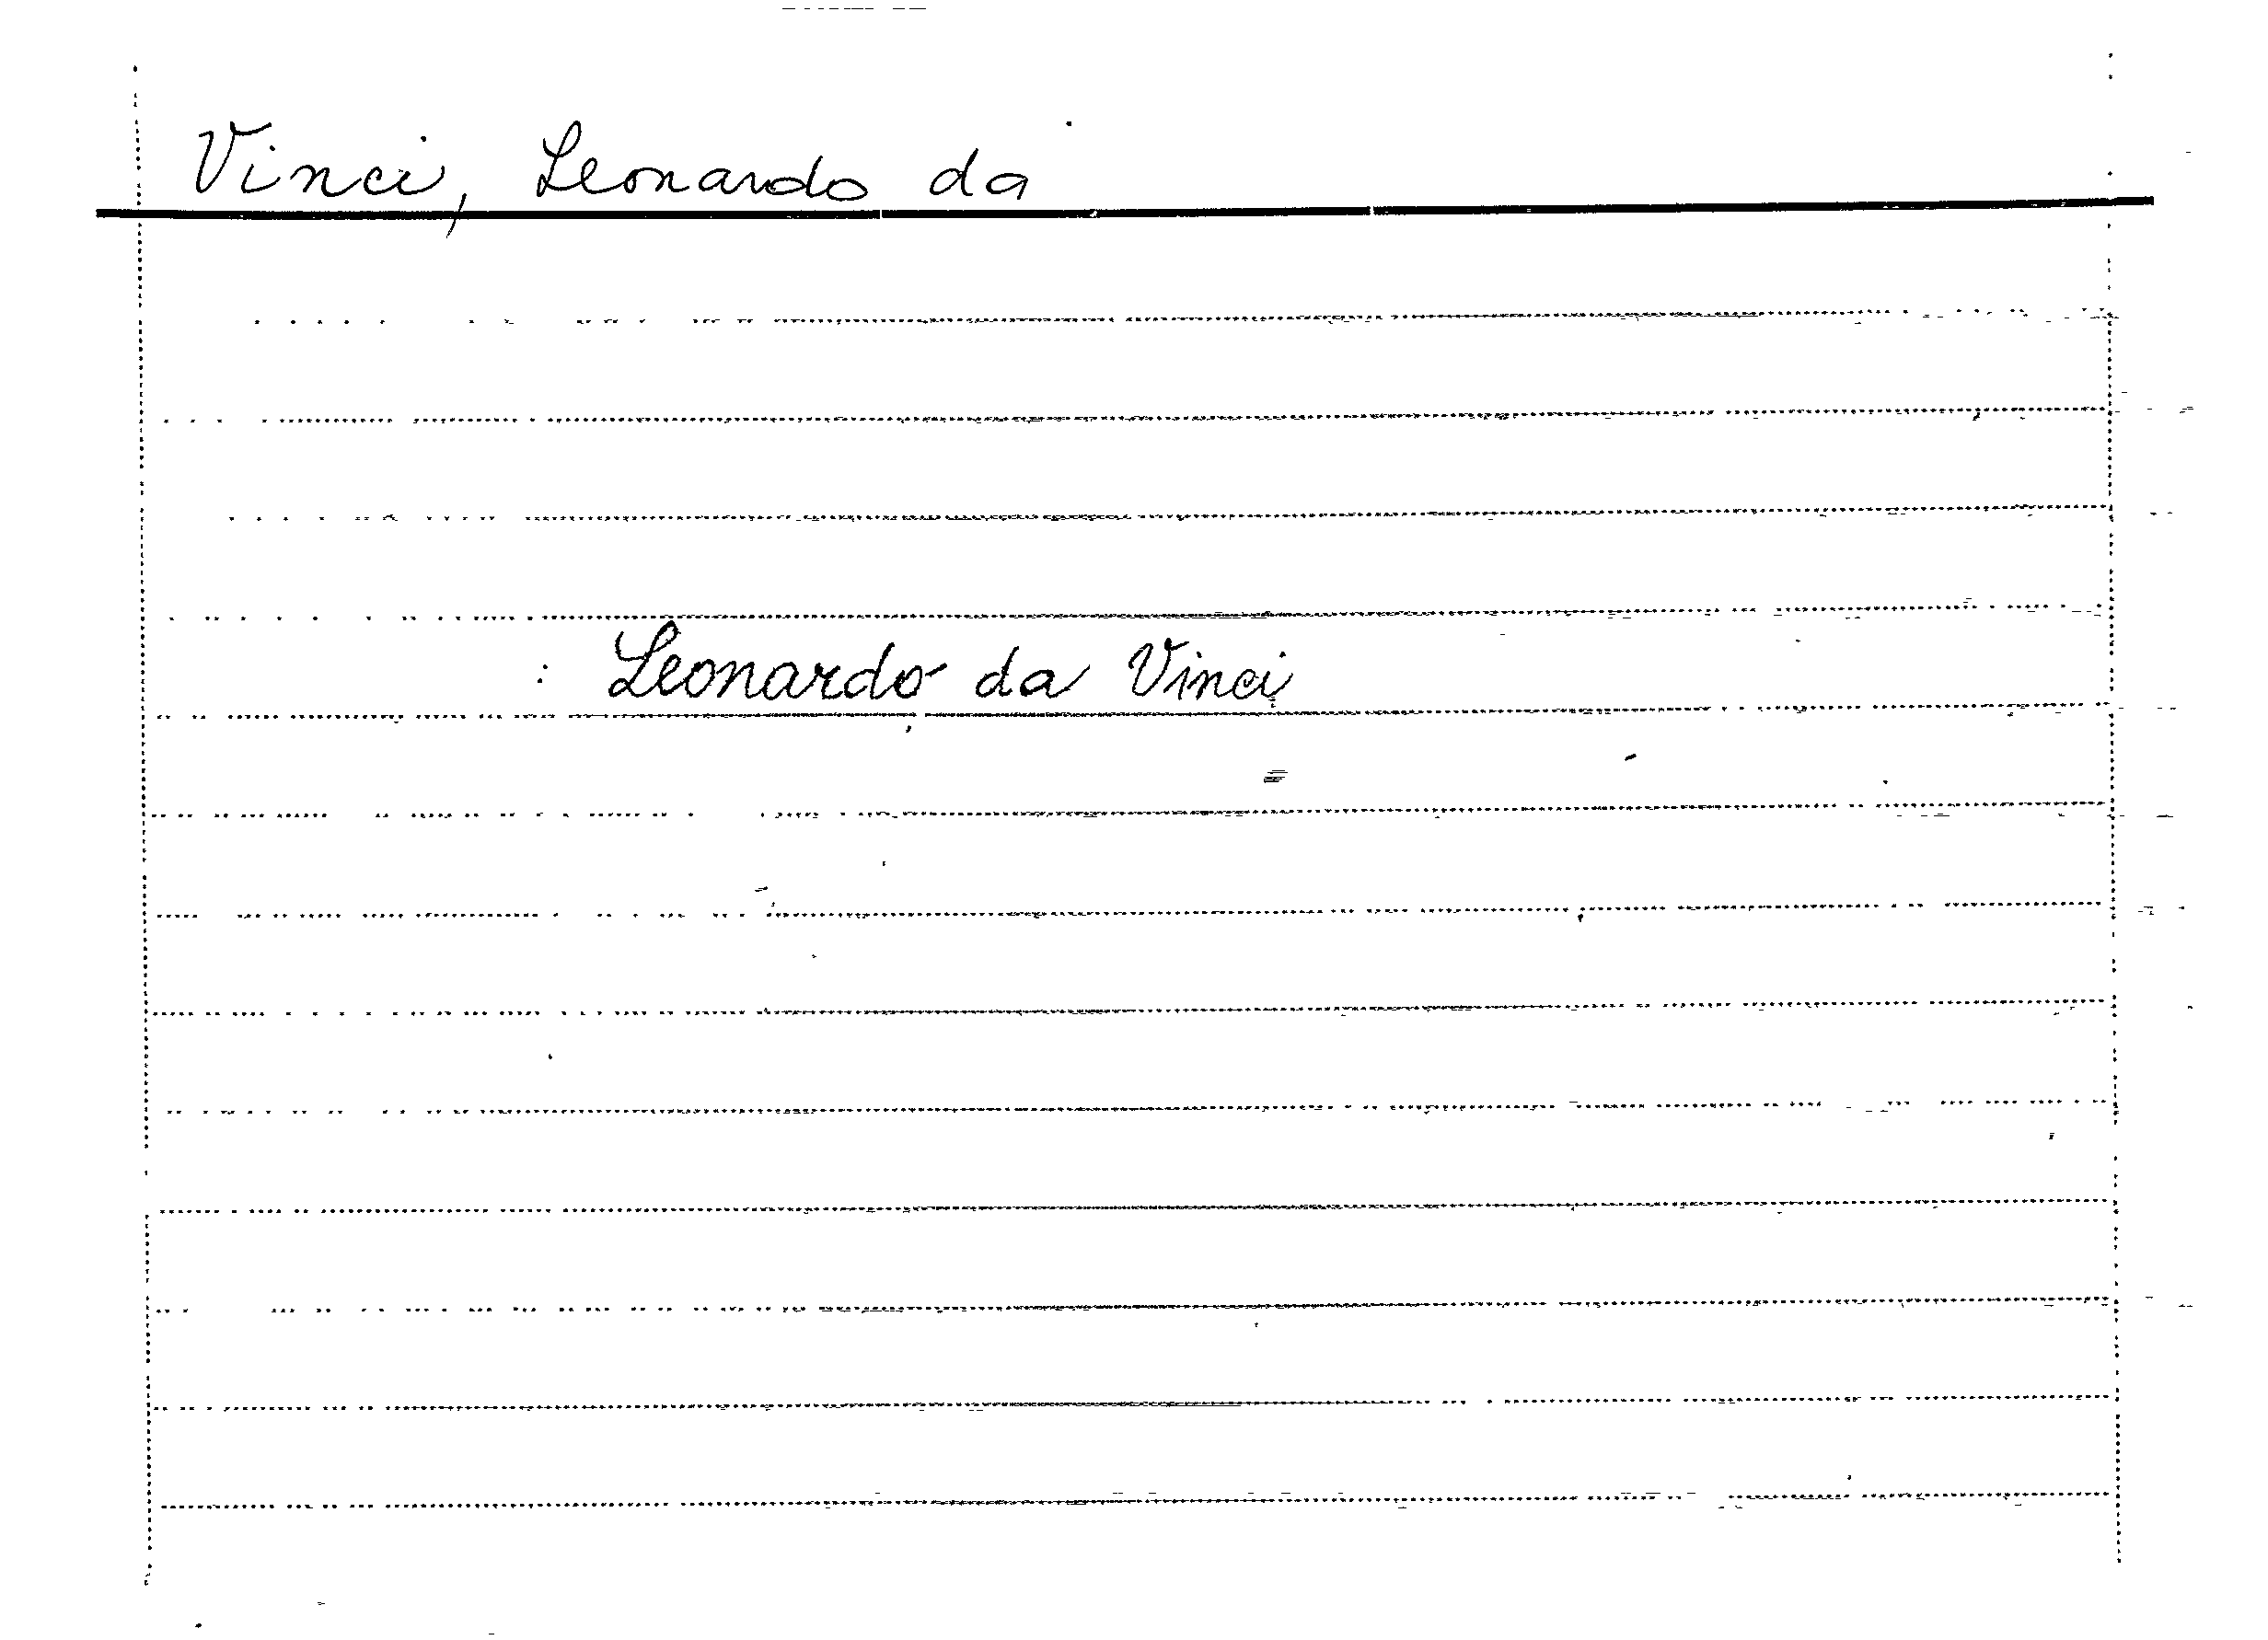 Vinci, Leonardo da
: Leonardo da Vinci